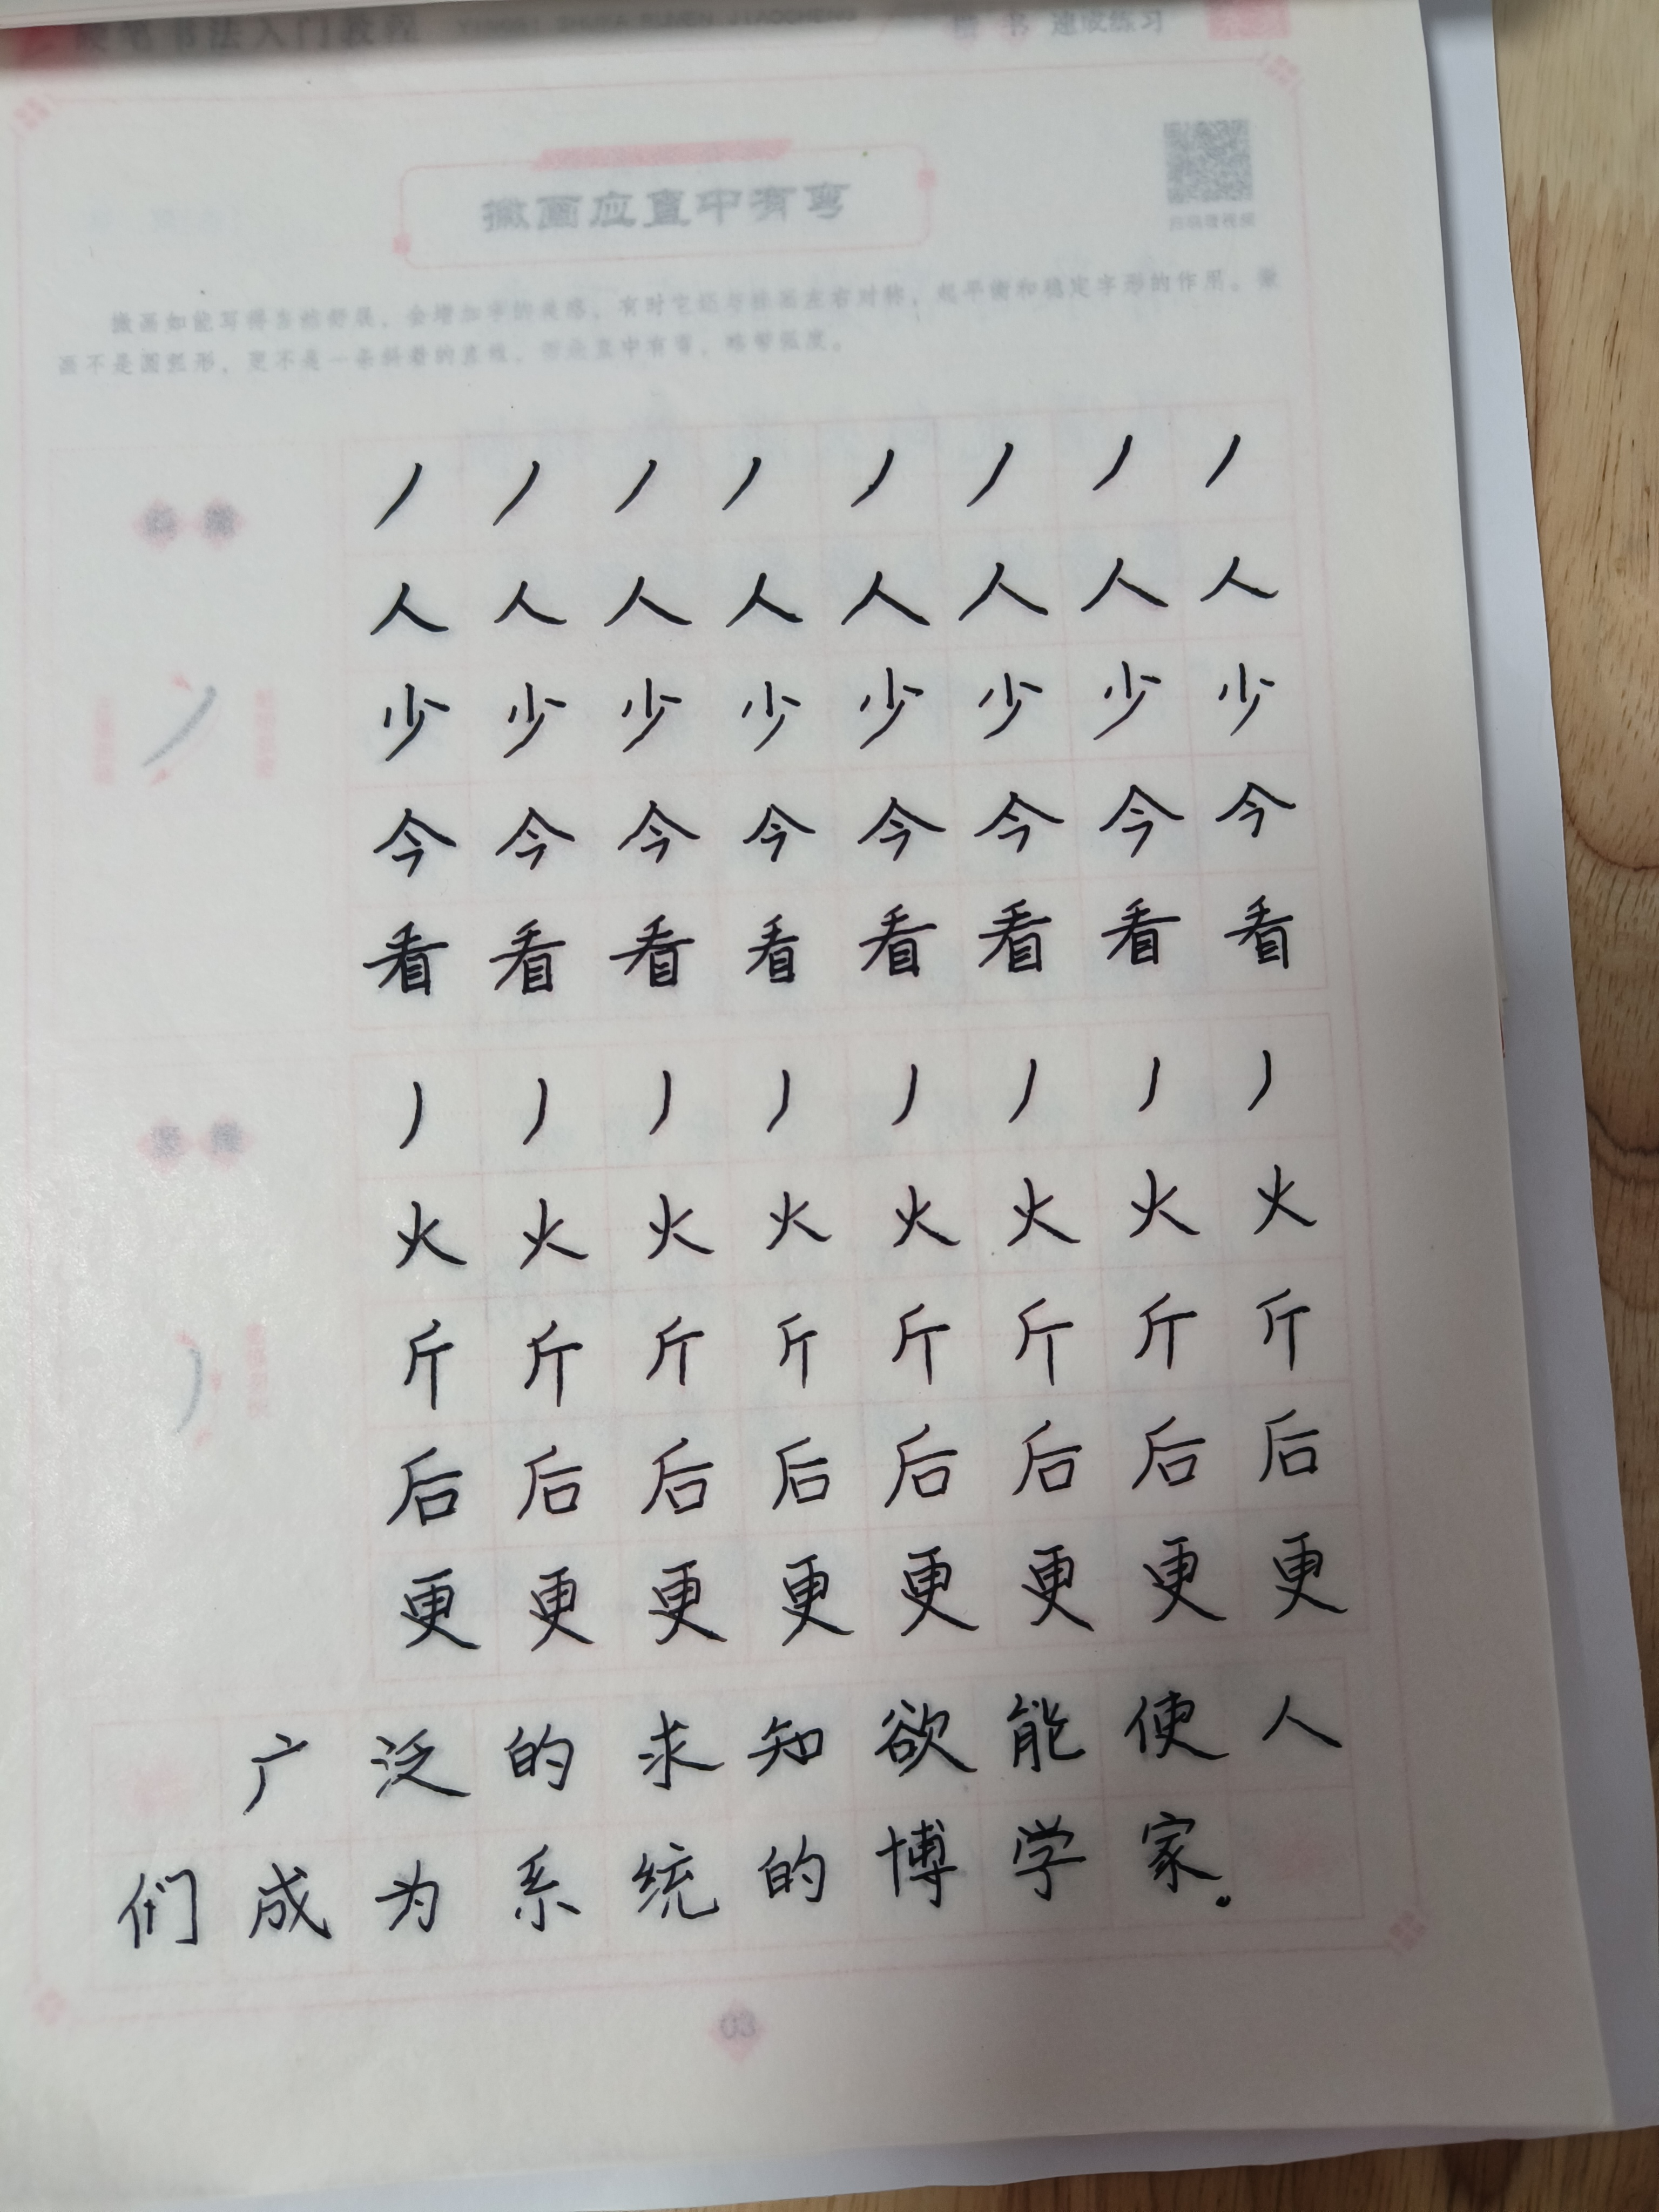 硬笔书法入门教程 YINGBI SHUFA RUMEN JIAOCHENG 楷书 速成练习
撇画应直中有弯
撇画如能写得自然舒展，会增加字的美感，有时它还与捺画左右对称，起平衡和稳定字形的作用。撇
画不是圆弧形，更不是一条斜着的直线，而是直中有弯，略带弧度。
斜撇
丿 丿 丿 丿 丿 丿 丿 丿
人 人 人 人 人 人 人 人
少 少 少 少 少 少 少 少
今 今 今 今 今 今 今 今
看 看 看 看 看 看 看 看
竖撇
丿 丿 丿 丿 丿 丿 丿 丿
火 火 火 火 火 火 火 火
斤 斤 斤 斤 斤 斤 斤 斤
后 后 后 后 后 后 后 后
更 更 更 更 更 更 更 更
广泛的求知欲能使人
们成为系统的博学家。
03